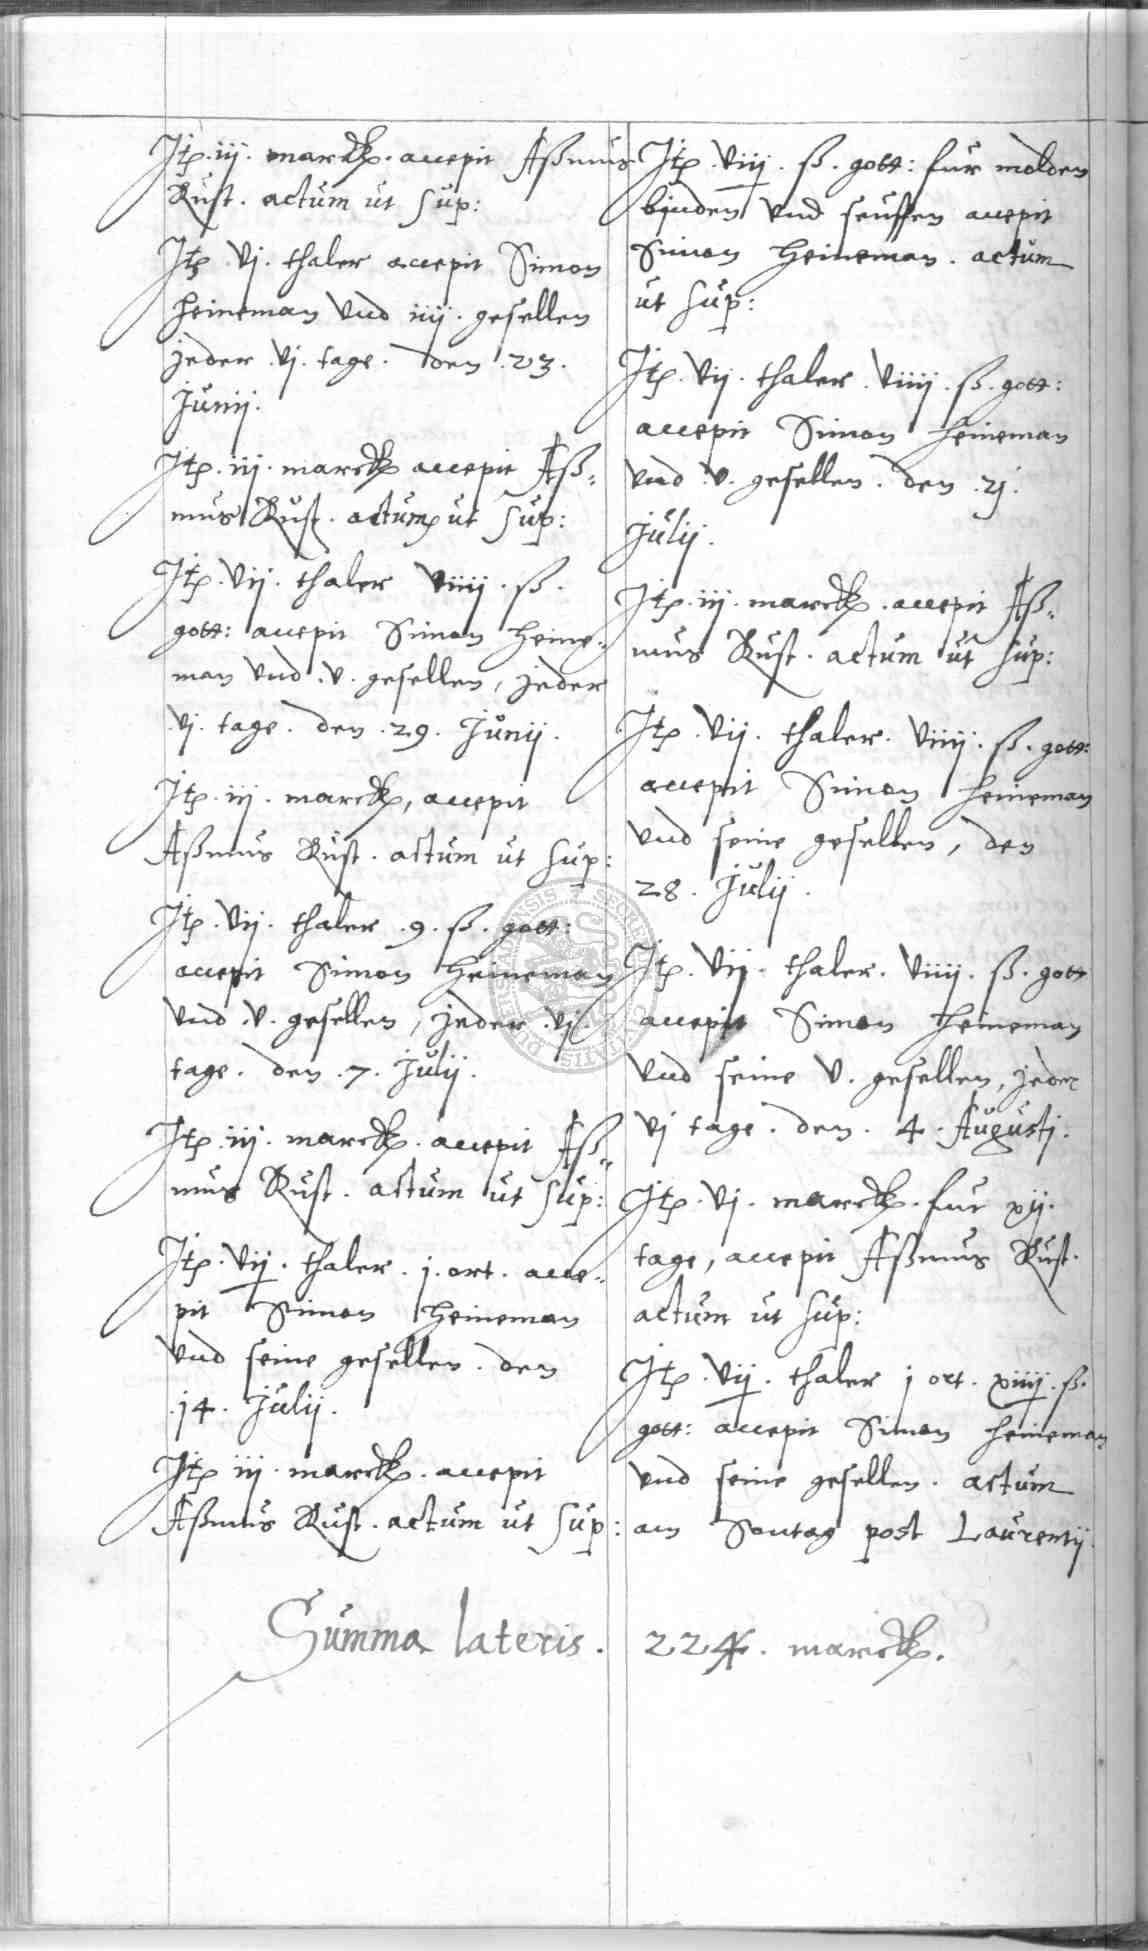 Itp. iij. marck. accepit Aßmus
Rust. actum ut sup:
Itp. vj. thaler accepit Simon
Heineman vnd iiij. gesellen
jeder .vj. tage. den .23.
Junij.
Itp. iij. marck accepit Aß=
mus Rust. actum ut sup:
Itp. vij. thaler viiij. ß.
gott: accepit Simon Heine=
man vnd .v. gesellen, jeder
vj. tage. den .29. Junij.
Itp. iij. marck, accepit
Aßmus Rust. actum ut sup:
Itp. vij. thaler .9. ß. gott:
accepit Simon Heineman
vnd .v. gesellen, jeder .vj.
tage. den .7. Julij.
Itp. iij. marck. accepit Aß=
mus Rust. actum ut sup:
Itp. vij. thaler . j. ort. acce=
pit Simon Heineman
vnd seine gesellen. den
.14. Julij.
Itp iij. marck. accepit
Aßmus Rust. actum ut sup:
Itp. viij. ß. gott: fur molden
binden vnd accepit
Simon Heineman. actum
ut sup:
Itp. vij. thaler. viiij. ß. gott:
accepit Simon Heineman
vnd .v. gesellen. den .2j.
Julij.
Itp. iij. marck. accepit Aß=
mus Rust. actum ut sup:
Itp. vij. thaler. viiij. ß. gott:
accepit Simon Heineman
vnd seine gesellen, den
28. Julij.
Itp. vij. thaler. viiij. ß. gott
accepit Simon Heineman
vnd seine v. gesellen, jeder
vj tage. den. 4. Augustj.
Itp. vj. marck. fur xij.
tage, accepit Aßmus Rust.
actum ut sup:
Itp. vij. thaler j ort. xiiij. ß.
gott: accepit Simon Heineman
vnd seine gesellen. actum
am Sontag post Laurentij.
Summa lateris. 224. marck.